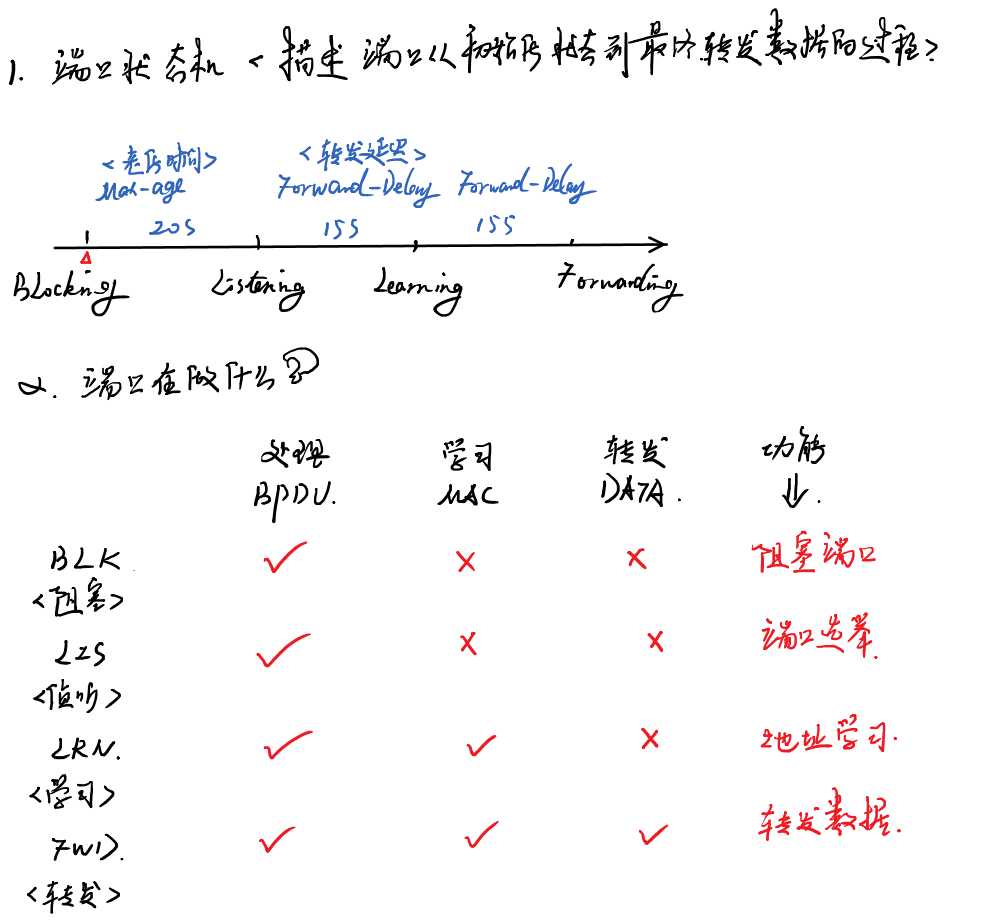 1. 端口状态机 <描述端口从初始化状态到最终转发数据的过程>
<老化时间> <转发延迟>
Max-age Forward-Delay Forward-Delay
20s 15s 15s
Blocking Listening Learning Forwarding
2. 端口在做什么?
处理 学习 转发 功能
BPDU. MAC DATA. ⇓.
BLK ✓ × × 阻塞端口
<阻塞>
LIS ✓ × × 端口选举.
<侦听>
LRN. ✓ ✓ × 地址学习.
<学习>
FWD. ✓ ✓ ✓ 转发数据.
<转发>